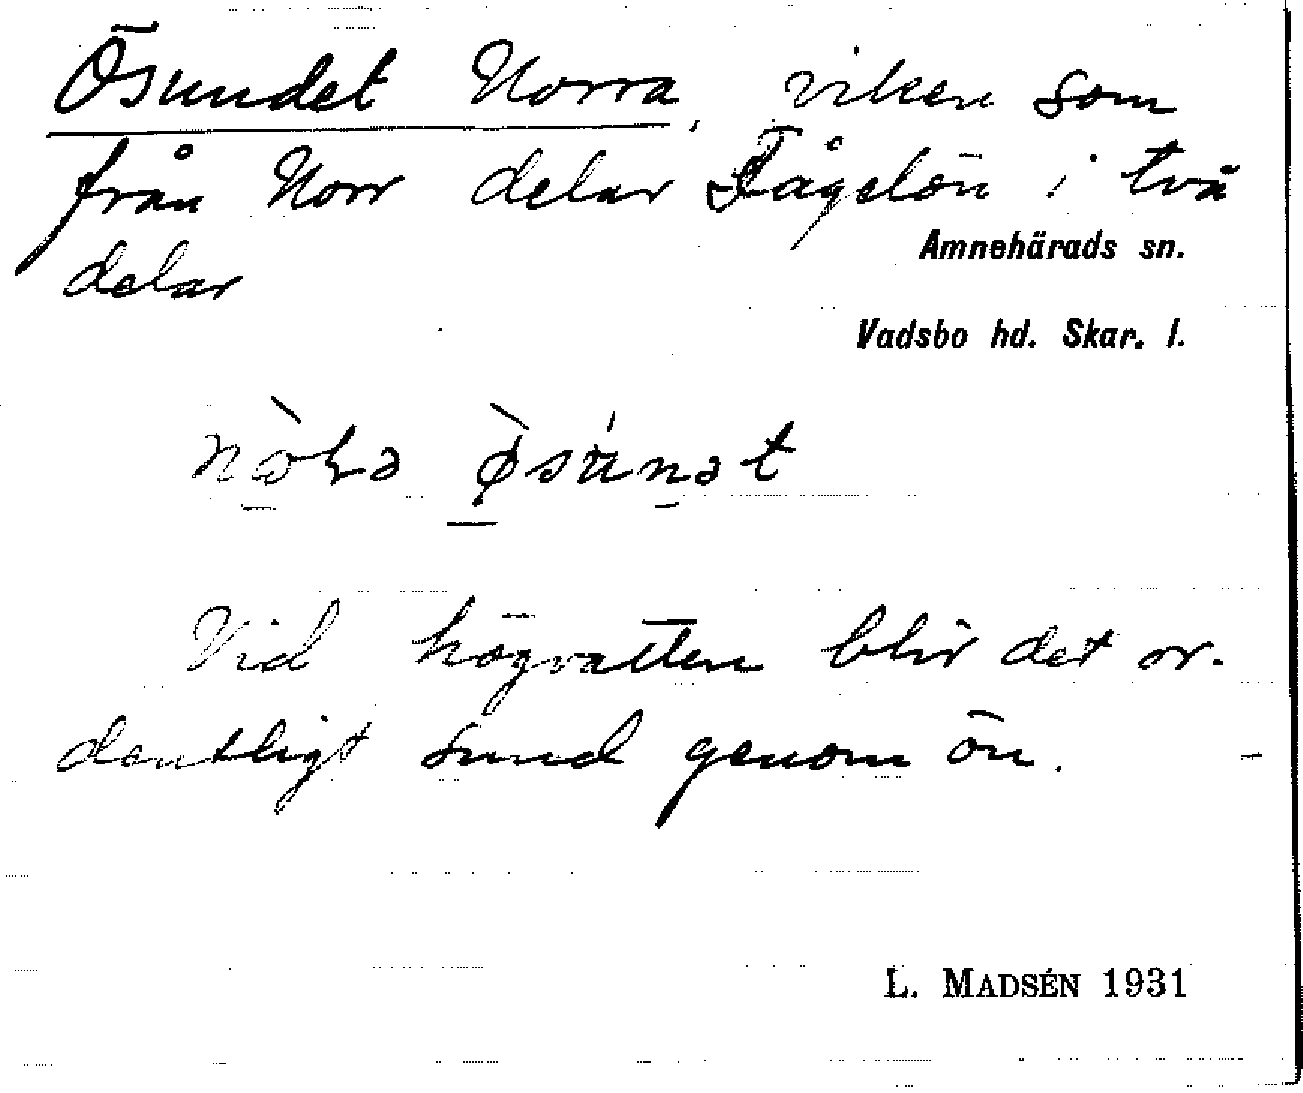 Ösundet Norra, viken som
från Norr delar Fågelön i två
delar
Amnehärads sn.
Vadsbo hd. Skar. l.
Vid högvatten blir det or-
dentligt sund genom ön. -
L. MADSÉN 1931